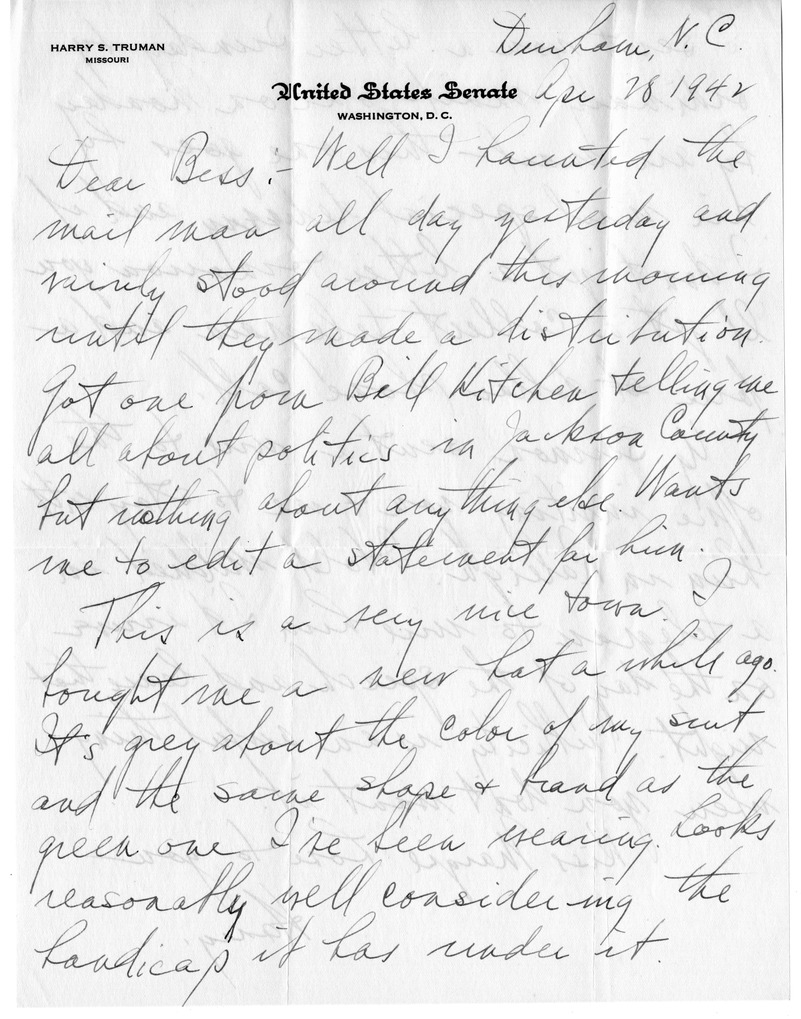 HARRY S. TRUMAN
MISSOURI
Durham, N.C.
United States Senate
Apr 28 1942
WASHINGTON, D. C.
Dear Bess:- Well I haunted the
mail man all day yesterday and
vainly stood around this morning
until they made a distribution.
Got one from Bill Kitchen telling me
all about politics in Jackson County
but nothing about anything else. Wants
me to edit a statement for him.
This is a very nice town. I
bought me a new hat a while ago.
It's grey about the color of my suit
and the same shape & brand as the
green one I've been wearing. Looks
reasonably well considering the
handicap it has under it.